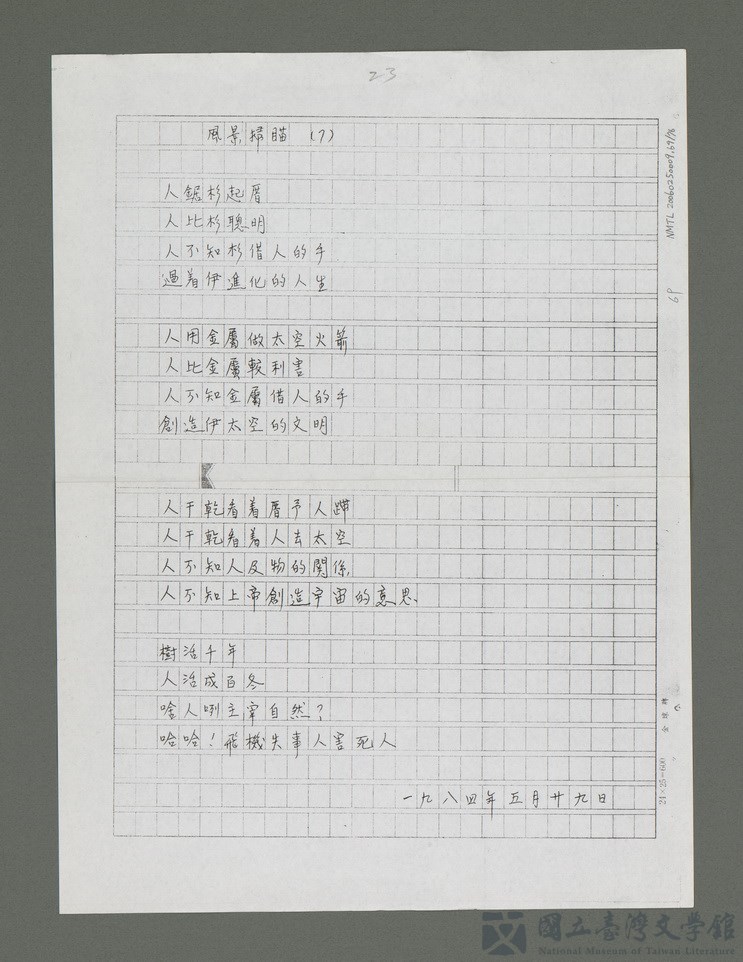 23
風景掃瞄 (7)
人鋸杉起厝
人比杉聰明
人不知杉借人的手
過着伊進化的人生
人用金屬做太空火箭
人比金屬較利害
人不知金屬借人的手
創造伊太空的文明
人干乾看着厝予人蹛
人干乾看着人去太空
人不知人及物的關係
人不知上帝創造宇宙的意思
樹活千年
人活成百冬
啥人咧主宰自然?
哈哈!飛機失事人害死人
一九八四年五月廿九日
NMTL 20060250009.69/76
69
24×25=600
國立臺灣文學館
National Museum of Taiwan Literature